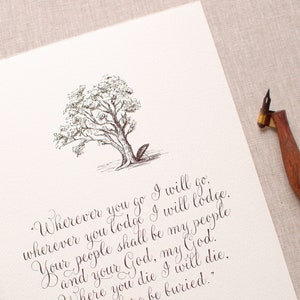 "Wherever you go I will go,
wherever you lodge I will lodge,
Your people shall be my people
and your God, my God.
Where you die I will die,
be buried."